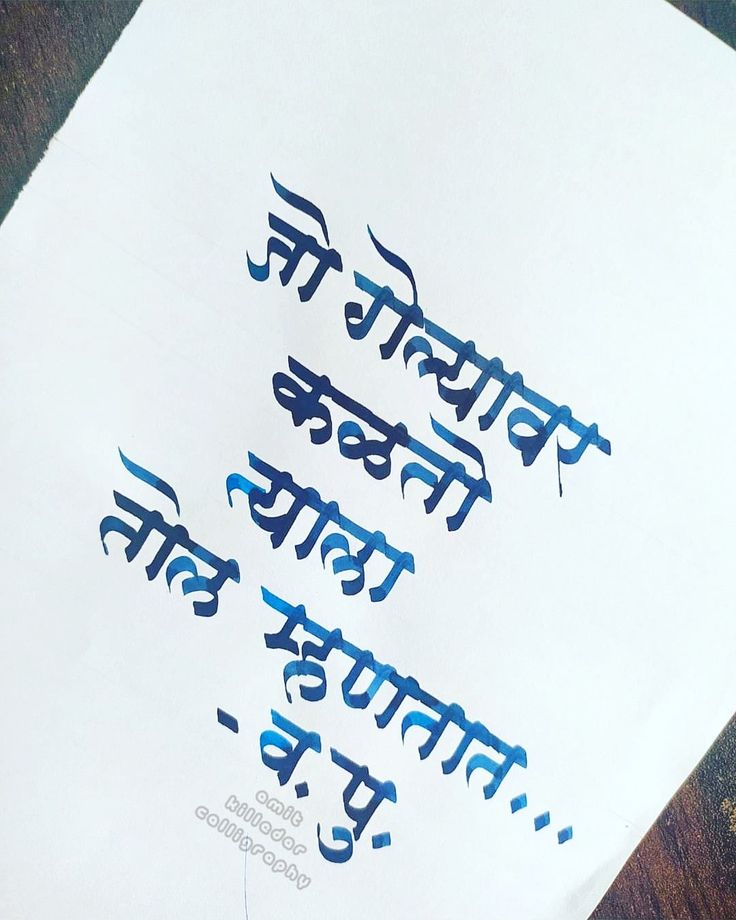 जो गेल्यावर
कळतो
त्याला
तोल म्हणतात...
- व. पु.
amit
killedar
calligraphy